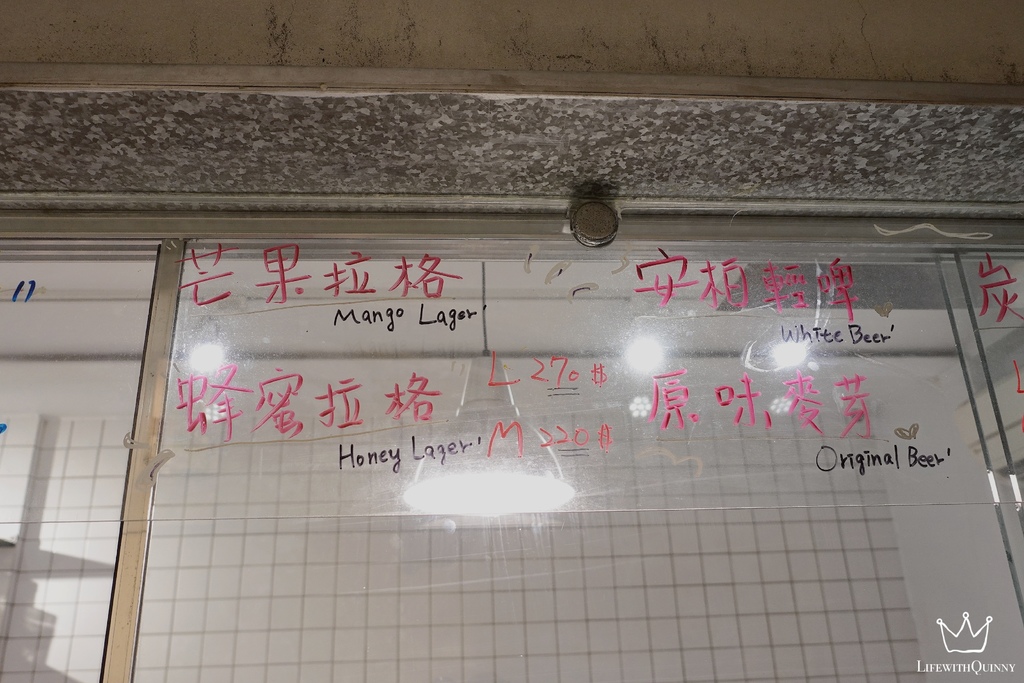 芒果拉格
Mango Lager
蜂蜜拉格
Honey Lager
L 270 $
M 220 $
安柏輕啤
White Beer
原味麥芽
Original Beer
炭
LIFEWITHQUINNY